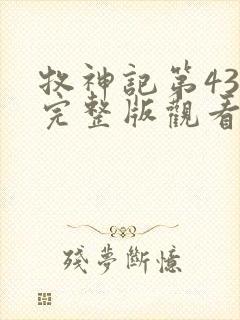 牧神記第43
完整版觀看
殘夢斷憶